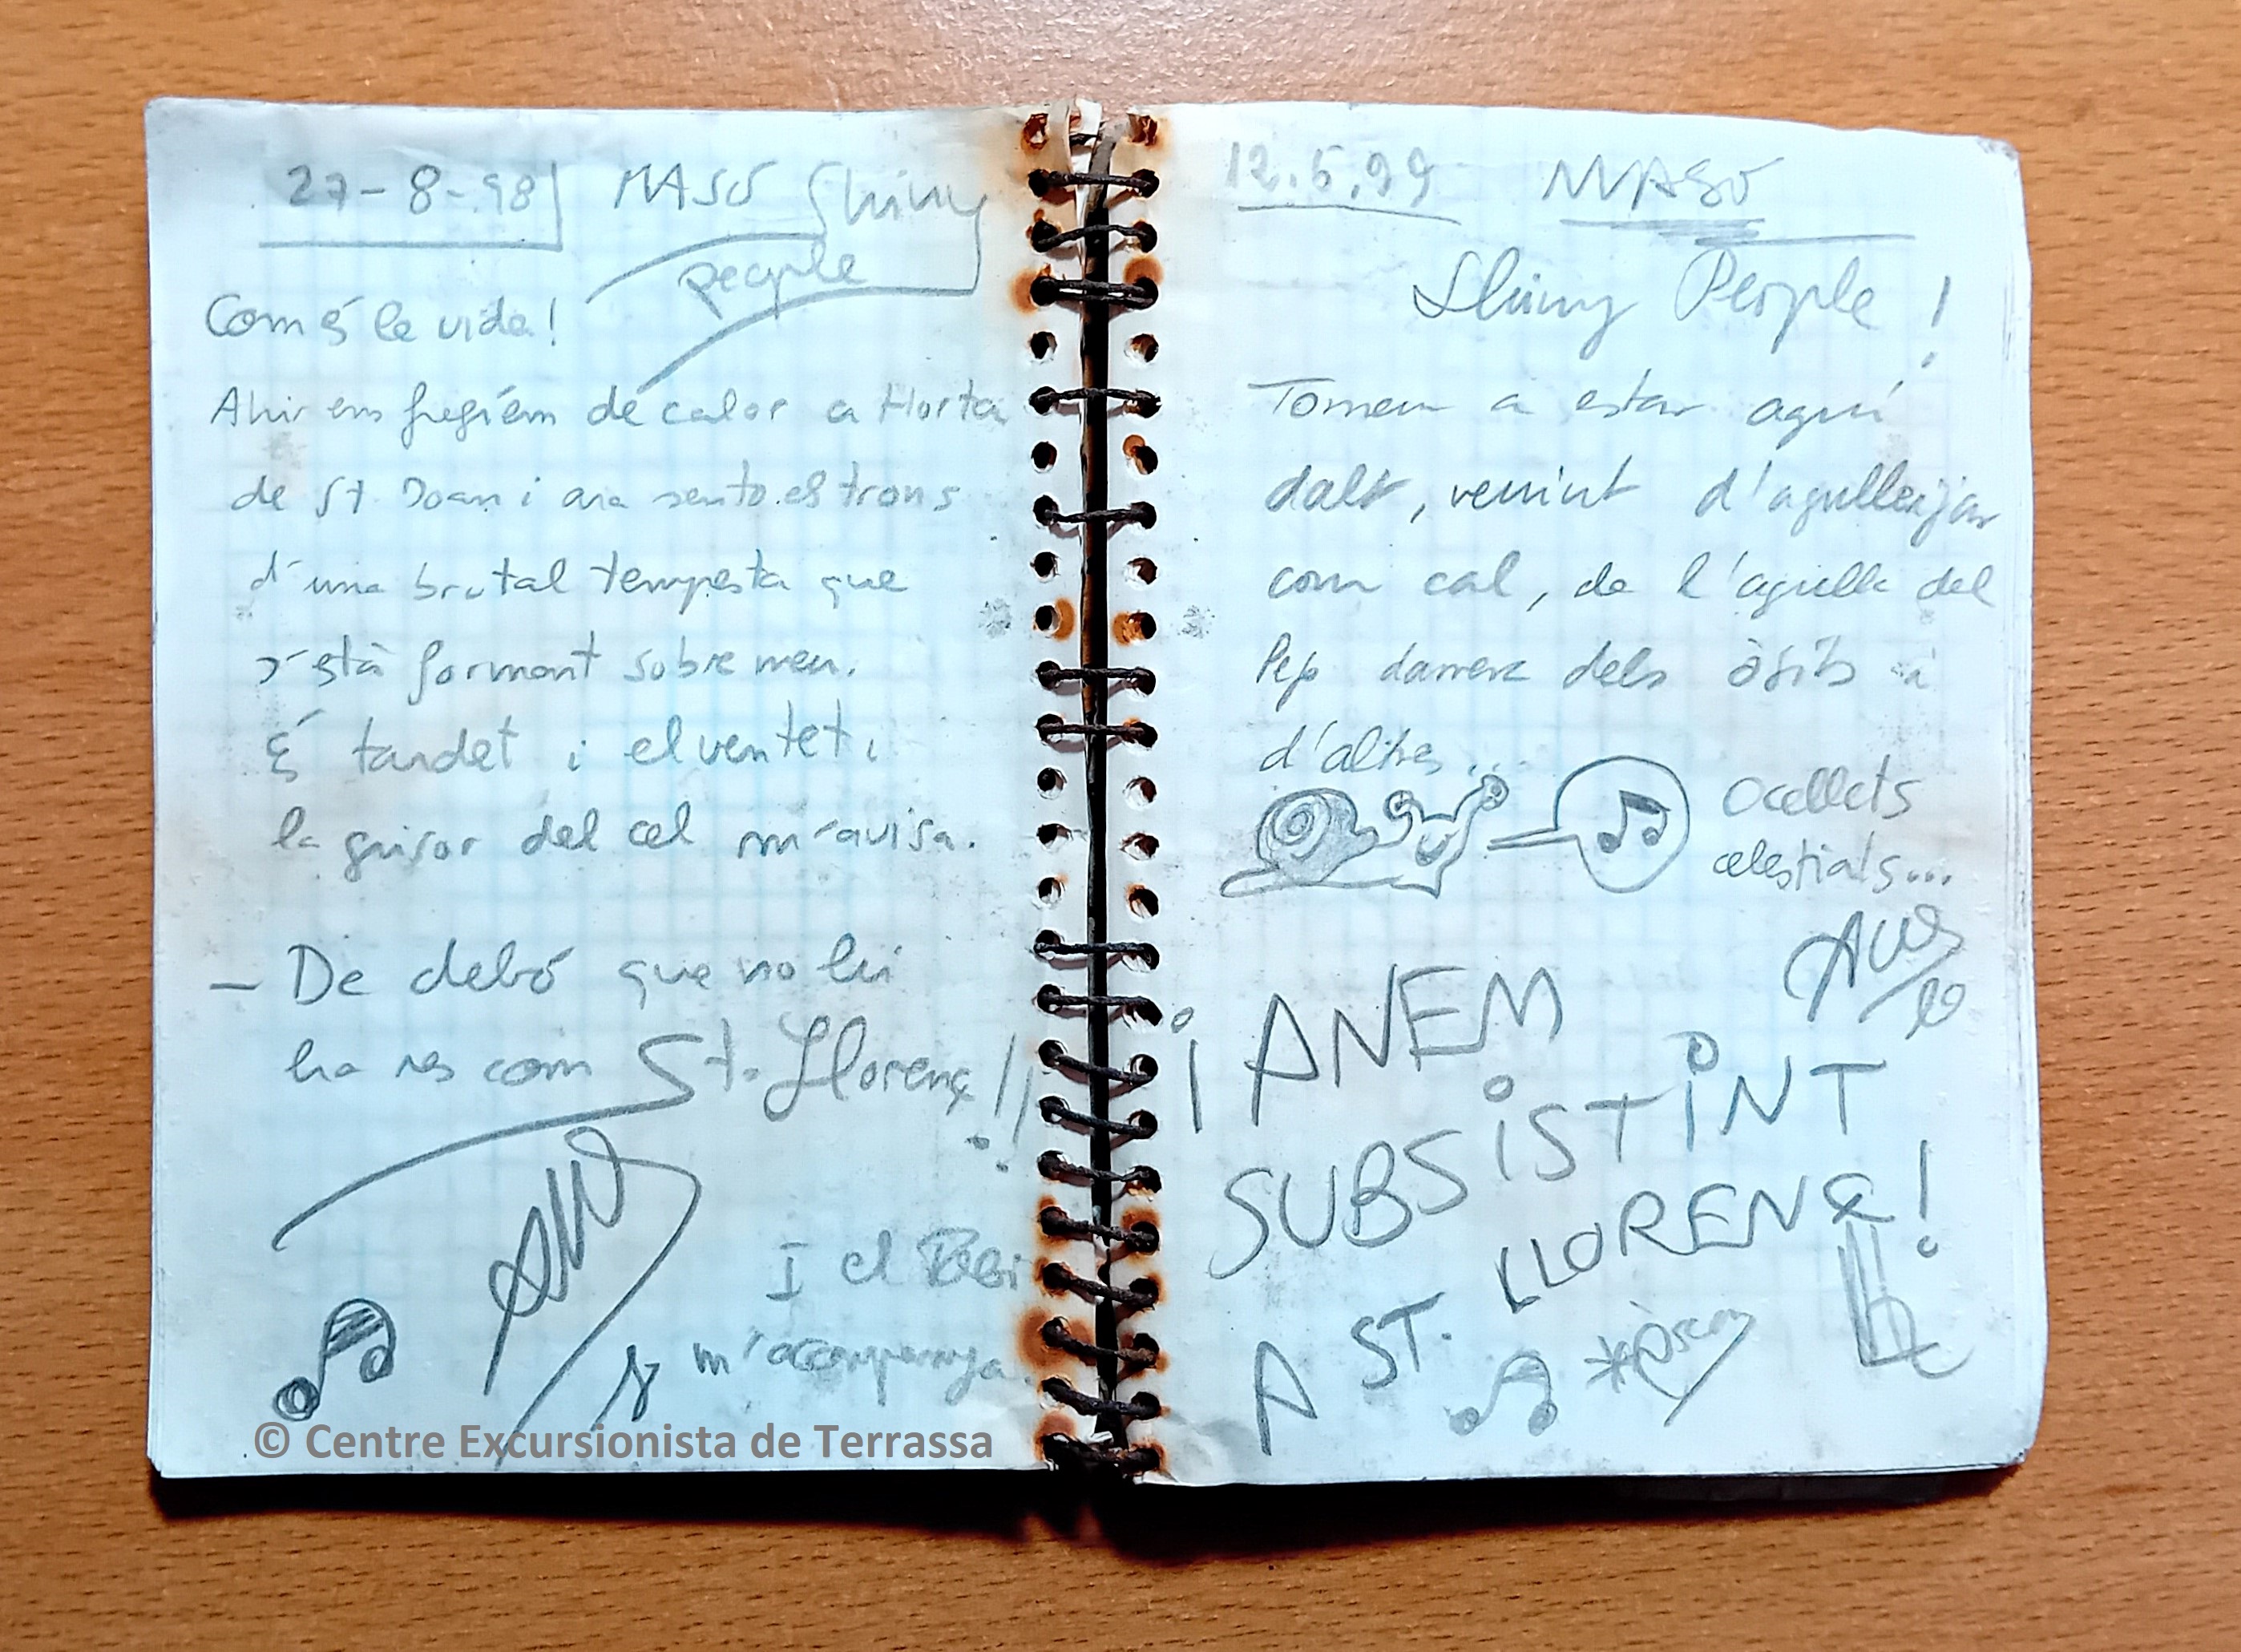 27-8-98 MASO Shiny
people
Com és la vida!
Ahir ens fregíem de calor a Horta
de St. Joan i ara sento els trons
d'una brutal tempesta que
s'està formant sobre meu.
És tardet i el ventet i
la grisor del cel m'avisa.
- De debó que no hi
ha res com St. Llorenç!!
I el
m'acompanya
© Centre Excursionista de Terrassa
12.5.99 MASO
Shiny People!
Tornem a estar aquí
dalt, venint d'agullejar
com cal, de l'agulla del
Pep darrera dels òbits i
d'altres...
Ocellets
celestials...
i ANEM
SUBSiSTiNT
A ST. LLORENÇ!